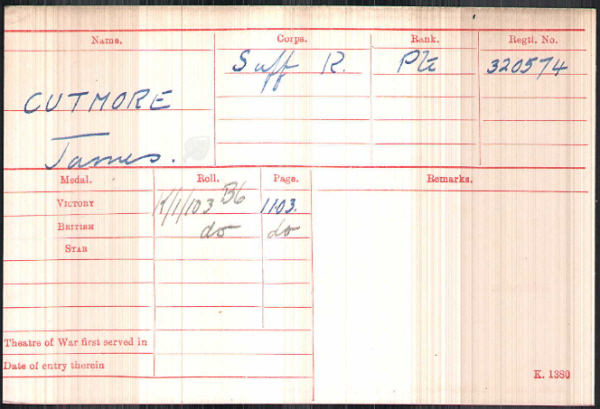 Name. Corps. Rank. Regtl. No.
Suff R. Pte 320574
CUTMORE
James.
Medal. Roll. Page. Remarks.
VICTORY K/1/103 B6 1103.
BRITISH do do
STAR
Theatre of War first served in
Date of entry therein
K. 1380